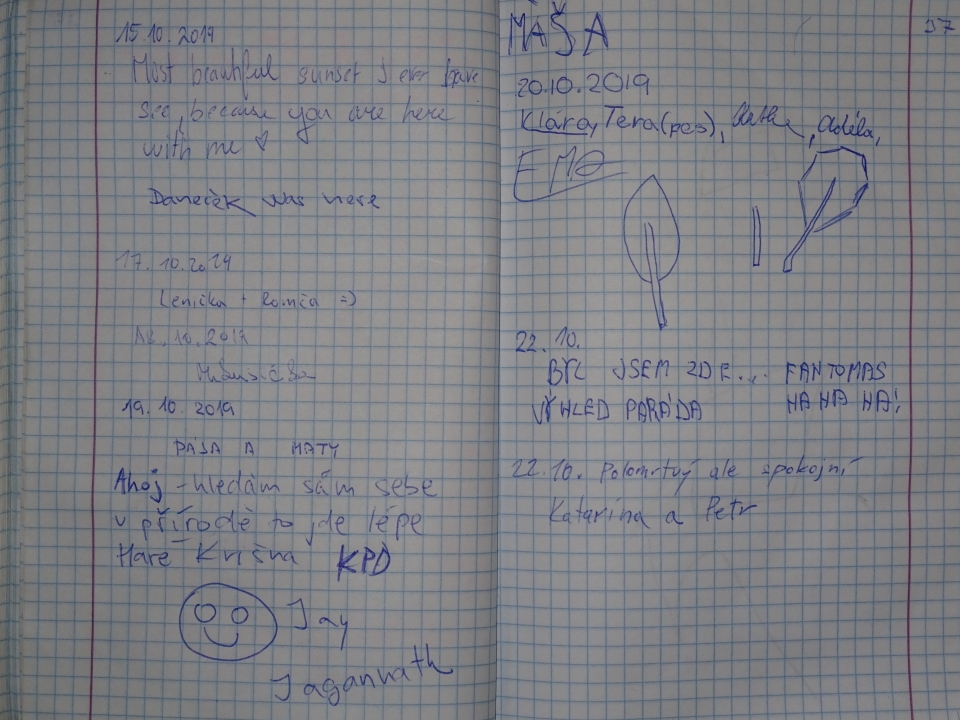 15.10.2019
Most beautiful sunset I ever have
see, because you are here
with me
Daneček was here
17.10.2019
Lenička + Romča =)
18.10.2019
19.10.2019
PÁJA A MATY
Ahoj - hledám sám sebe
v přírodě to jde lépe
Haré Krišna KPD
Jay
Jagannath
MÁŠA
37
20.10.2019
Klára, Tera (pes), Adéla,
EMA
22.10.
BYL JSEM ZDE... FANTOMAS
VÝHLED PARÁDA HA HA HA!
22.10. Polomrtvý ale spokojní
Katarína a Petr